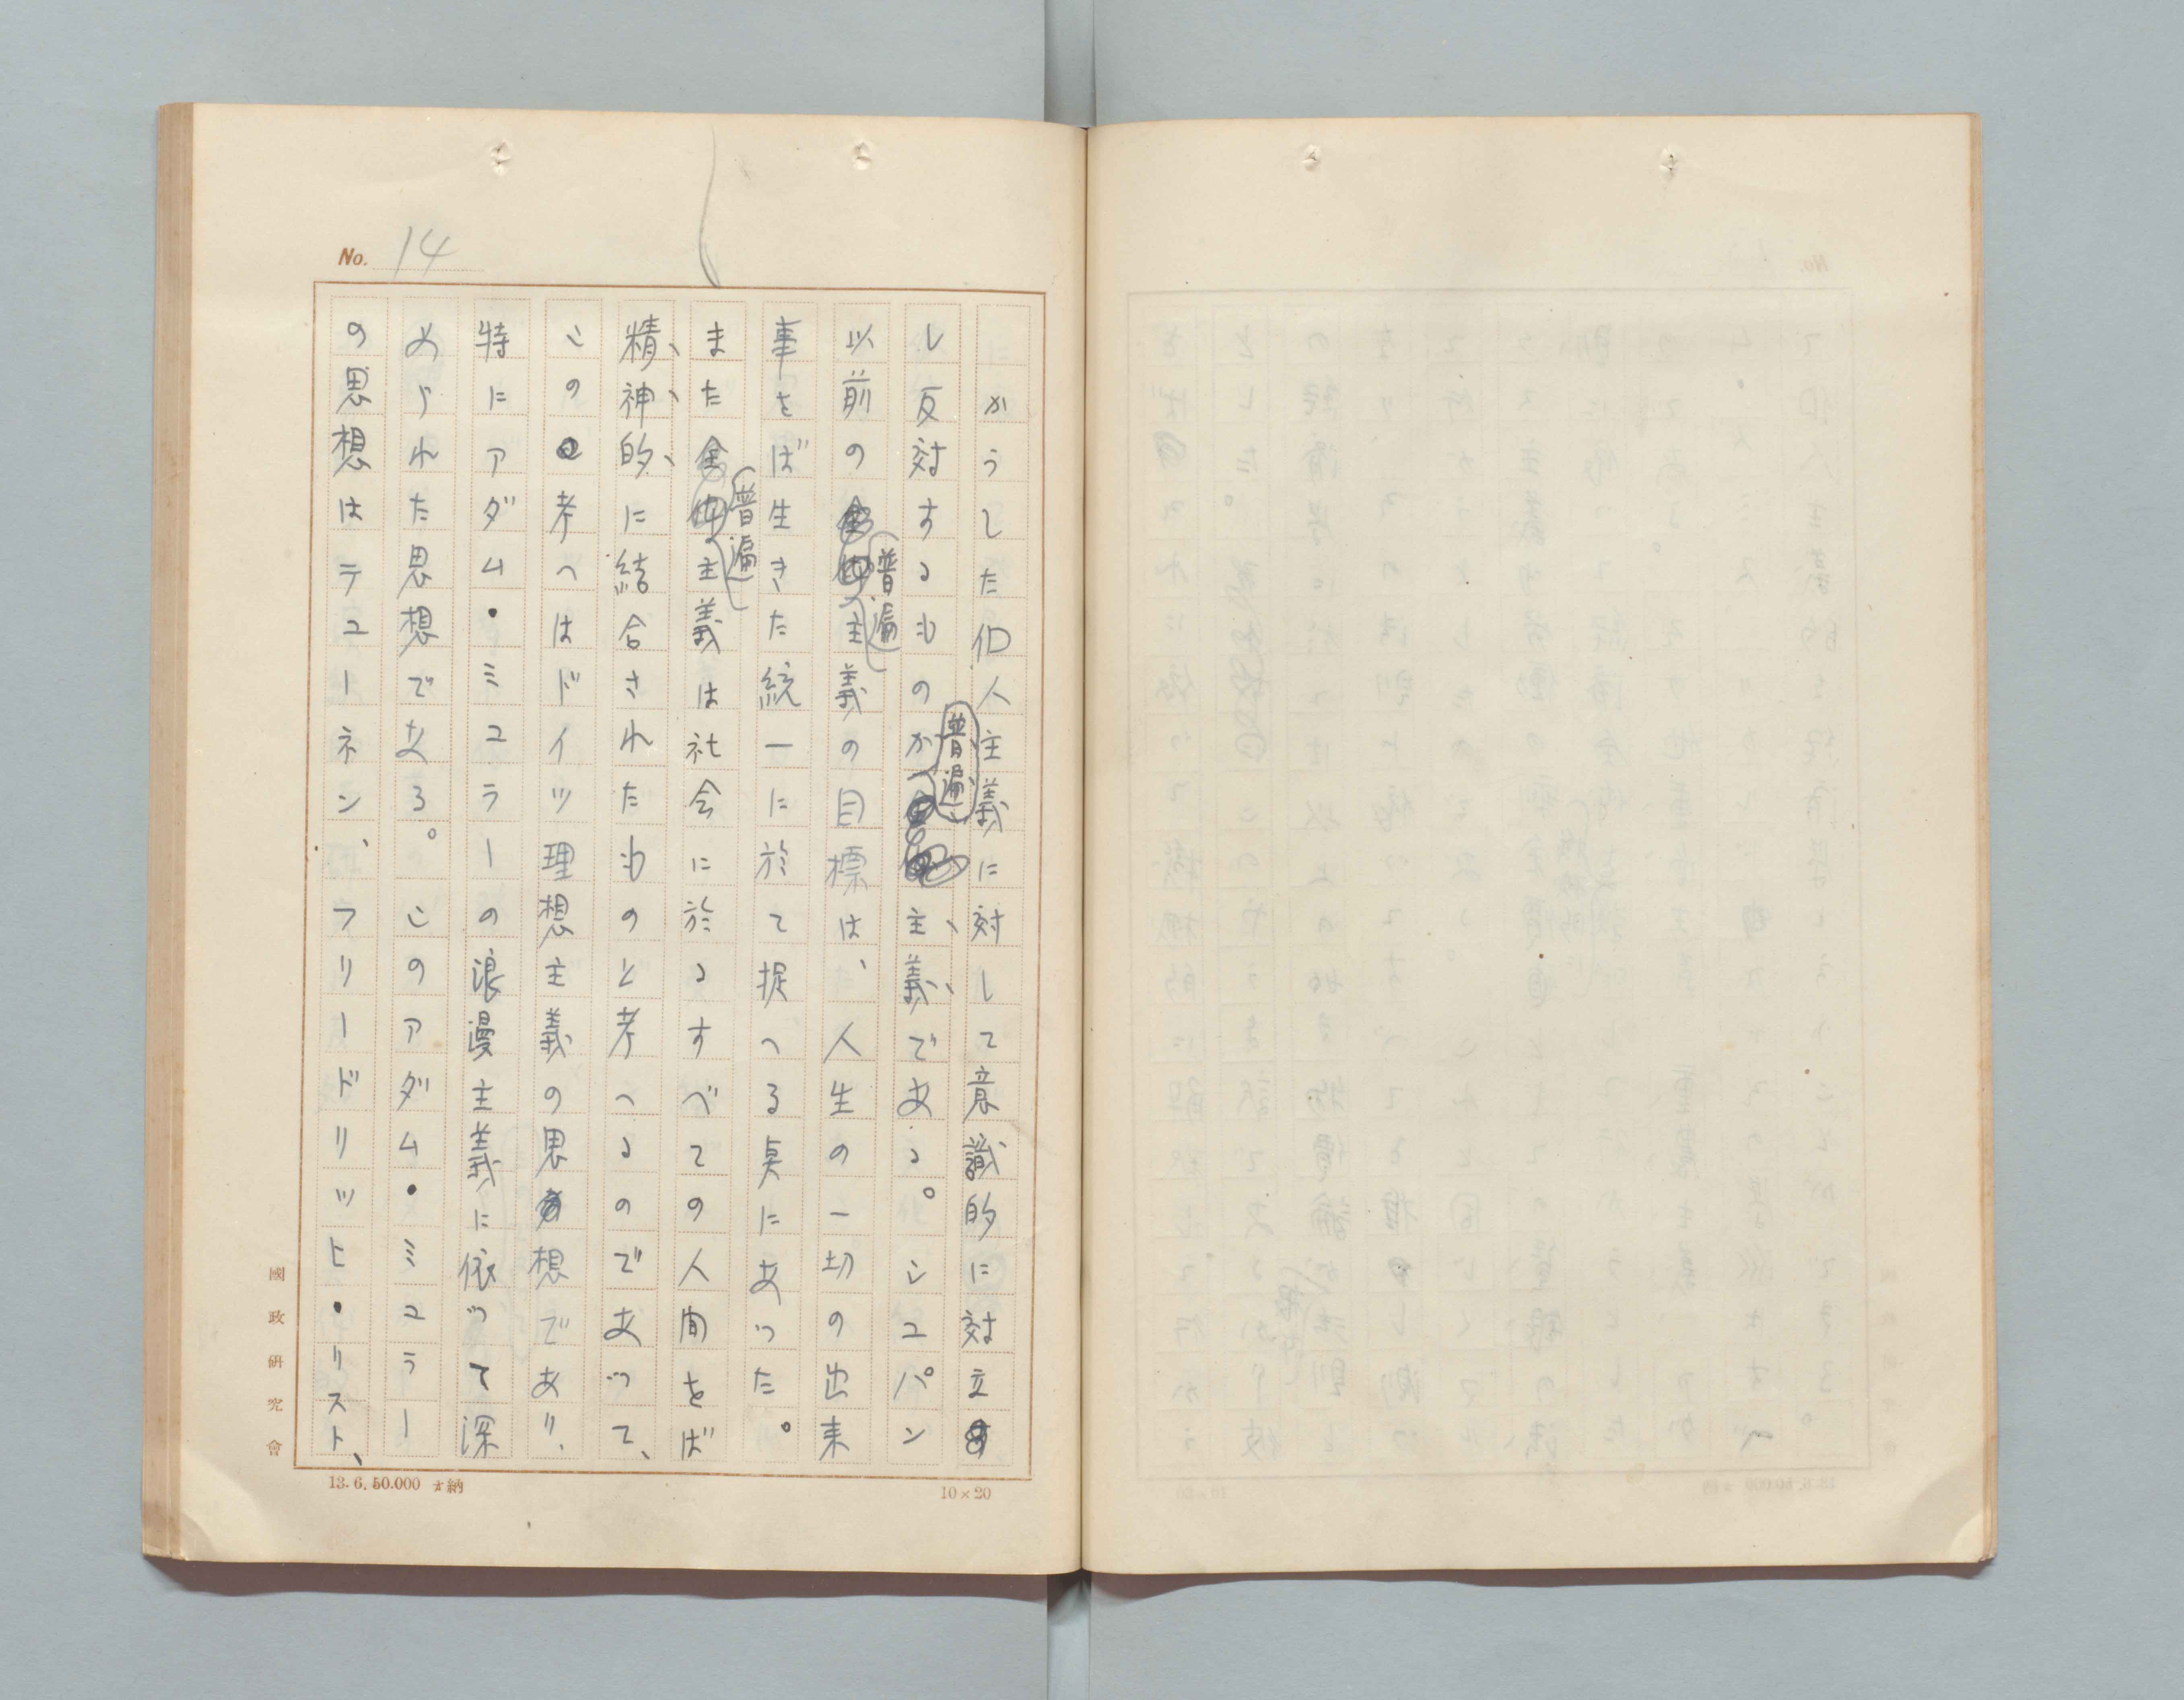 No. 14
かうした個人主義に対して意識的に対立
し反対するものが普遍主義である。シユパン
以前の普遍主義の目標は、人生の一切の出来
事をば生きた統一に於て捉へる点にあつた。
また普遍主義は社会に於るすべての人間をば
精神的に結合されたものと考へるのであつて、
この考へはドイツ理想主義の思想であり、
特にアダム・ミユラーの浪漫主義に依つて深
められた思想である。このアダム・ミユラー
の思想はテユーネン、フリードリツヒ・リスト、
國政研究會
13.6.50.000 納
10×20